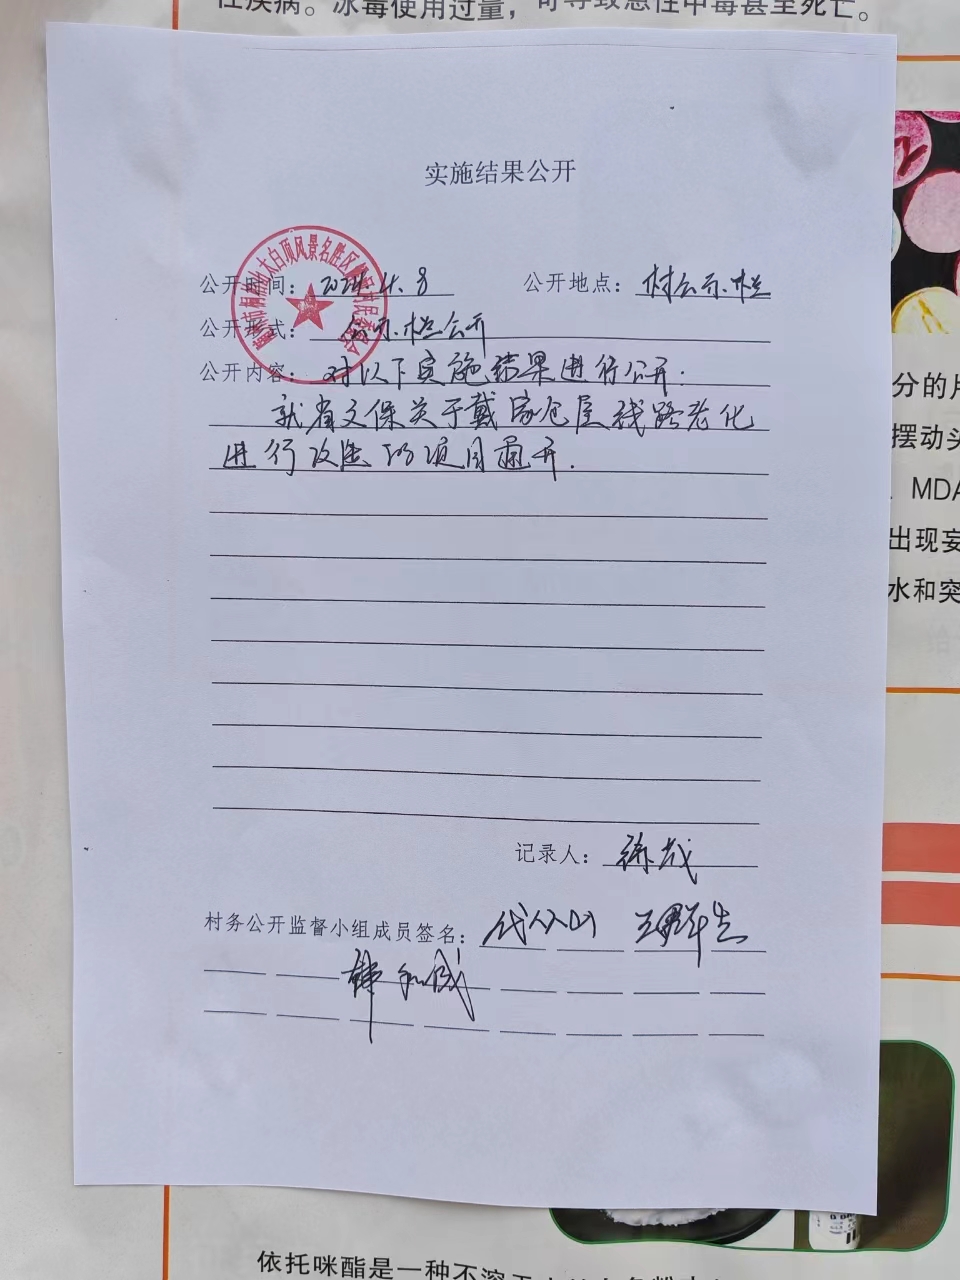 性疾病。冰毒使用过量，可导致急性中毒甚至死亡。
实施结果公开
太白顶风景名胜区
公开时间：2024.4.8 公开地点：村公示栏
公开形式：公示栏公开
公开内容：对以下实施结果进行公开：
就省文保关于戴家仓屋线路老化
进行改造的项目
分的片
摆动头
MDA
出现妄
水和突
记录人：
村务公开监督小组成员签名：
依托咪酯是一种不溶于水的